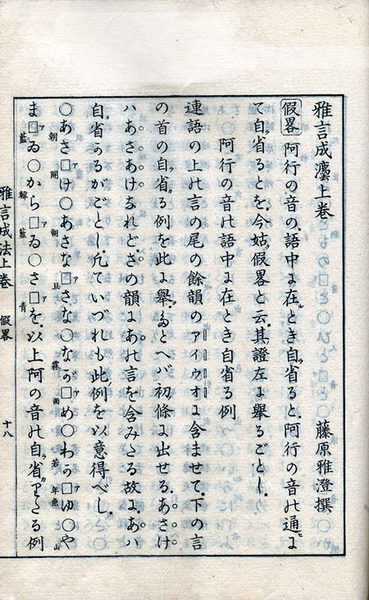 雅言成灋上卷　藤原雅澄撰
假畧 阿行の音の語中に在とき自省ると阿行の音の通に
て自省るとを今姑假畧と云其證左に擧るごとし
阿行の音の語中に在とき自省る例
連語の上の言の尾の餘韻のアイウオに含ませて下の言
の首の自省る例を此に擧ぐたとへバ初條に出せるあさけ
ハあさあけなれどさの韻にあの言を含みたる故にあハ
自省かるがごとし凡ていづれも此例を以意得べし
○あさ□け○あさな□さな○ながめ○わか□ゆ○や
朝開 朝旦 霖雨 若年魚 山
ま□ゐ○から□ゐ○さ□を以上阿の音の自省りたる例
藍 韓藍 青
雅言成法上卷 假畧 十八